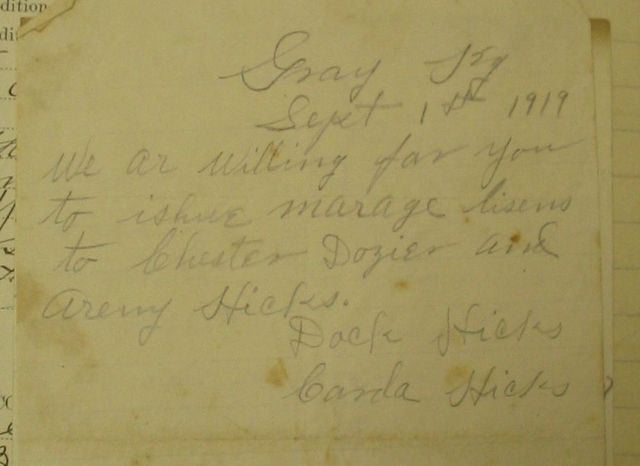 dition
Gray
Sept 1st 1919
We ar willing for you
to ishue marage lisens
to Chester Dozier and
Areny Hicks.
Dock Hicks
Carda Hicks